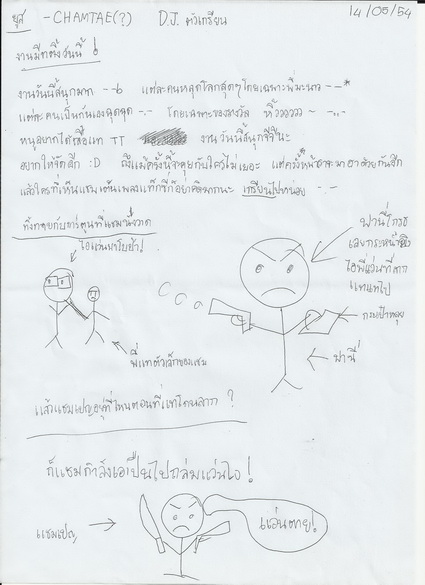 ยูส -CHAMTAE(?) D.J. ตัวเกรียน
14/05/54
งานมีทติ้งวันนี้ !
งานวันนี้สนุกมาก --b แต่ละคนหลุดโลกสุดๆโดยเฉพาะพี่มะนาว --*
แต่ละคนเป็นกันเองสุดสุด -.- โดยเฉพาะของรางวัล หิ้ววววว ~ -..-
หนูอยากได้เสื้อแท TT งานวันนี้สนุกจีจี้นะ
อยากให้จัดอีก :D ถึงแม้ครั้งนี้จะคุยกับใครไม่เยอะ แต่ครั้งหน้าจะมาฮาด้วยกันอีก
แล้วใครที่เห็นแชมเต้นเพลงแท๊กซี่ก็อย่าคิดมากนะ เกรียนไปหน่อย -.-
ทิ้งทายกับการ์ตูนที่แชมนั่งวาด
ไอแว่นหาโบย้า!
พี่แทตัวเล็กของแชม
ฟานี่โกรธ
เลยกระหน่ำยิง
ไอพี่แว่นที่ลาก
แทแทไป
กระเป๋าหลุย
ฟานี่
แล้วแชมเปญอยู่ที่ไหนตอนที่แทโดนลาก ?
ก็แชมกำลังเอาปืนไปถล่มแว่นไง !
แชมเปญ
แว่นตาย!